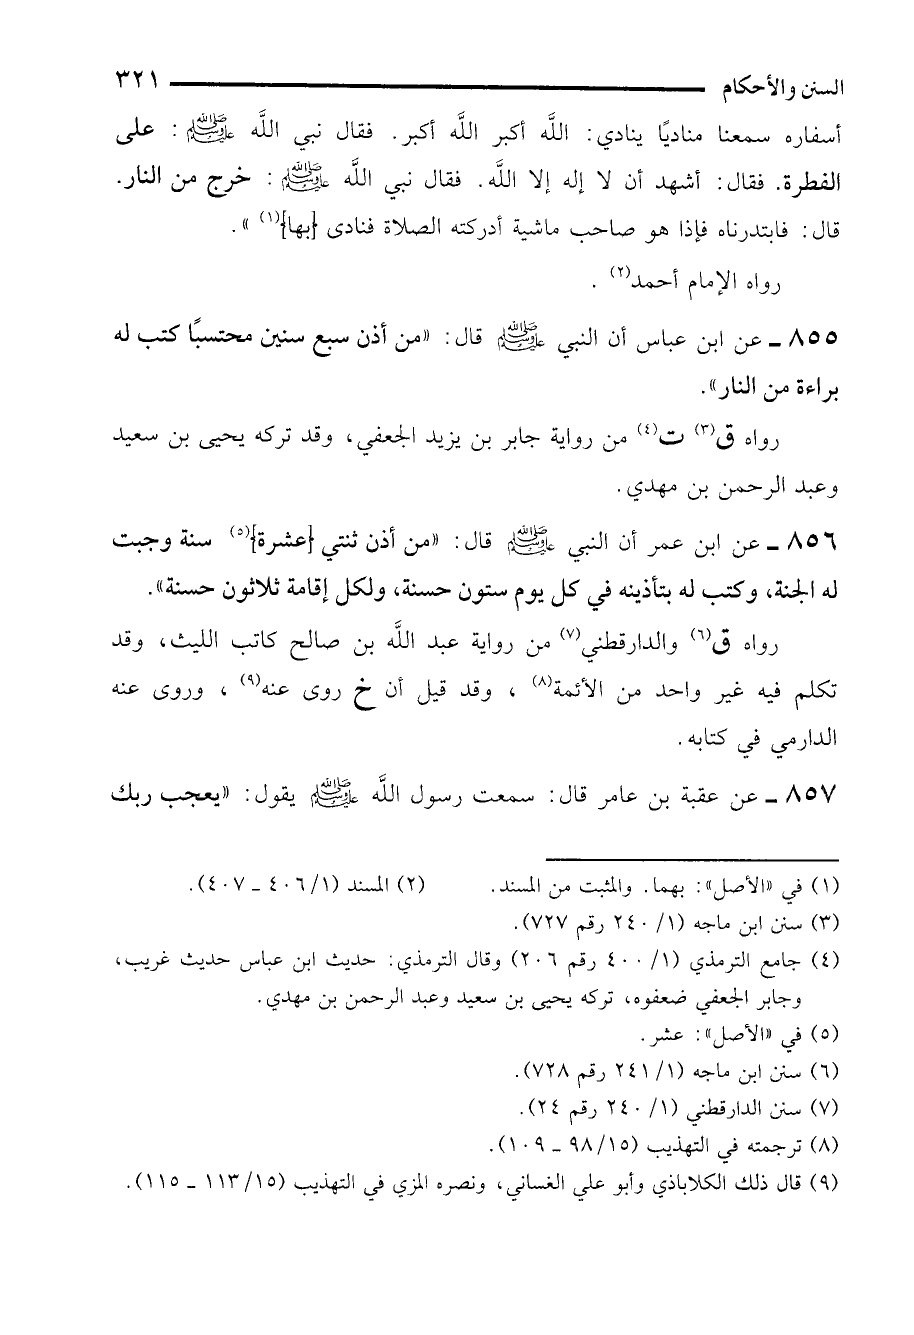 السنن والأحكام ٣٢١
أسفاره سمعنا مناديًا ينادي: اللَّه أكبر اللَّه أكبر. فقال نبي اللَّه ﷺ: على
الفطرة. فقال: أشهد أن لا إله إلا اللَّه. فقال نبي اللَّه ﷺ: خرج من النار.
قال: فابتدرناه فإذا هو صاحب ماشية أدركته الصلاة فنادى {بها}(١) ».
رواه الإمام أحمد(٢) .
٨٥٥ ـ عن ابن عباس أن النبي ﷺ قال: «من أذن سبع سنين محتسبًا كتب له
براءة من النار».
رواه ق(٣) ت(٤) من رواية جابر بن يزيد الجعفي، وقد تركه يحيى بن سعيد
وعبد الرحمن بن مهدي.
٨٥٦ ـ عن ابن عمر أن النبي ﷺ قال: «من أذن ثنتي {عشرة}(٥) سنة وجبت
له الجنة، وكتب له بتأذينه في كل يوم ستون حسنة، ولكل إقامة ثلاثون حسنة».
رواه ق(٦) والدارقطني(٧) من رواية عبد اللَّه بن صالح كاتب الليث، وقد
تكلم فيه غير واحد من الأئمة(٨) ، وقد قيل أن خ روى عنه(٩) ، وروى عنه
الدارمي في كتابه.
٨٥٧ ـ عن عقبة بن عامر قال: سمعت رسول اللَّه ﷺ يقول: «يعجب ربك
(١) في «الأصل»: بهما. والمثبت من المسند. (٢) المسند (١/ ٤٠٦ ـ ٤٠٧).
(٣) سنن ابن ماجه (١/ ٢٤٠ رقم ٧٢٧).
(٤) جامع الترمذي (١/ ٤٠٠ رقم ٢٠٦) وقال الترمذي: حديث ابن عباس حديث غريب،
وجابر الجعفي ضعفوه، تركه يحيى بن سعيد وعبد الرحمن بن مهدي.
(٥) في «الأصل»: عشر.
(٦) سنن ابن ماجه (١/ ٢٤١ رقم ٧٢٨).
(٧) سنن الدارقطني (١/ ٢٤٠ رقم ٢٤).
(٨) ترجمته في التهذيب (١٥/ ٩٨ ـ ١٠٩).
(٩) قال ذلك الكلاباذي وأبو علي الغساني، ونصره المزي في التهذيب (١٥/ ١١٣ ـ ١١٥).